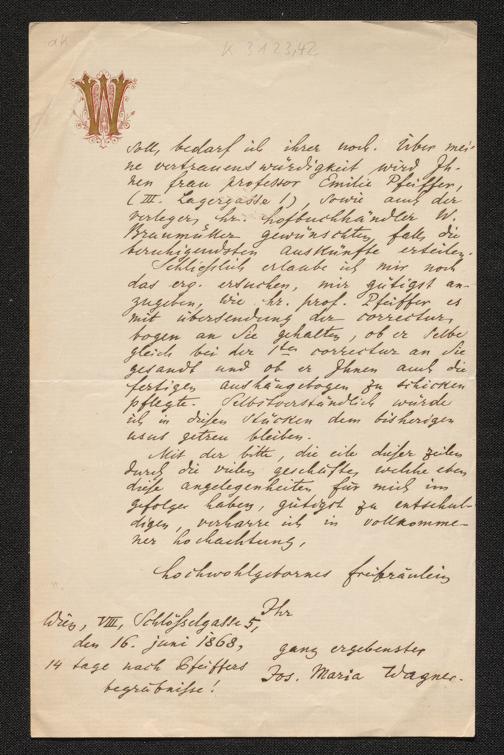 K 3123,42
W
soll, bedarf ich ihrer noch. Über mei-
ne vertrauenswürdigkeit wird Ih-
nen frau professor Emilie Pfeiffer,
(III. Lagergasse 1), sowie auch der
verleger, hr. hofbuchhändler W.
Braumüller gewünschten falls die
beruhigendsten auskünfte erteilen.
Schließlich erlaube ich mir noch
das erg. ersuchen, mir gütigst an-
zugeben, wie hr. prof. Pfeiffer es
mit übersendung der correctur
bogen an Sie gehalten, ob er selbe
gleich bei der 1ten correctur an Sie
gesandt und ob er Ihnen auch die
fertigen aushängebogen zu schicken
pflegte. Selbstverständlich würde
ich in disen stücken dem bisherigen
usus getreu bleiben.
Mit der bitte, die eile diser zeilen
durch die vilen geschäfte, welche eben
dise angelegenheiten für mich im
gefolge haben, gütigst zu entschul-
digen, verharre ich in vollkomme-
ner hochachtung,
hochwohlgebornes freifräulein
Ihr
ganz ergebenster
Jos. Maria Wagner.
Wien, VIII, Schlößelgasse 5,
den 16. juni 1868,
14 tage nach Pfeiffers
begräbnisse!